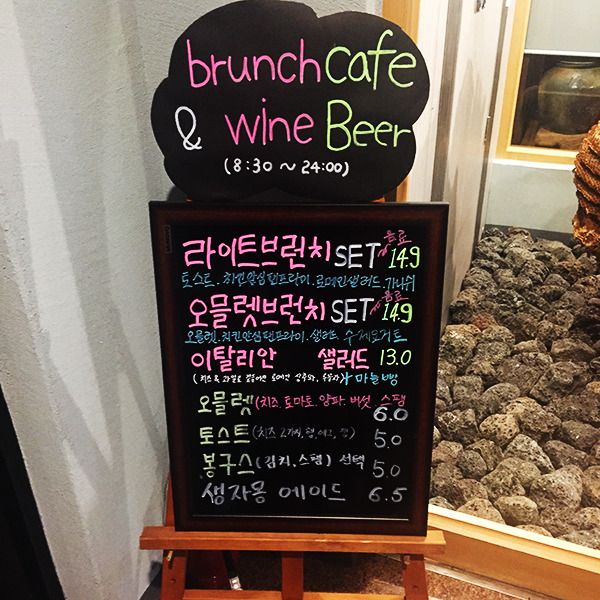 brunch cafe
& wine Beer
(8:30 ~ 24:00)
라이트브런치 SET 음료 14.9
토스트. 치킨안심팬프라이. 로메인샐러드. 가니쉬
오믈렛브런치 SET 음료 14.9
오믈렛. 치킨안심팬프라이. 샐러드 수제요거트
이탈리안 샐러드 13.0
(치즈 &
마늘빵
오믈렛 (치즈. 토마토. 양파. 버섯. 스팸
6.0
토스트 (치즈 2가지, 햄, 에그, 잼) 5.0
봉구스 (김치, 스팸) 선택 5.0
생자몽 에이드 6.5